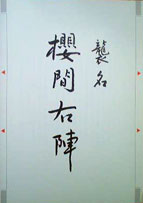 襲名
櫻間右陣